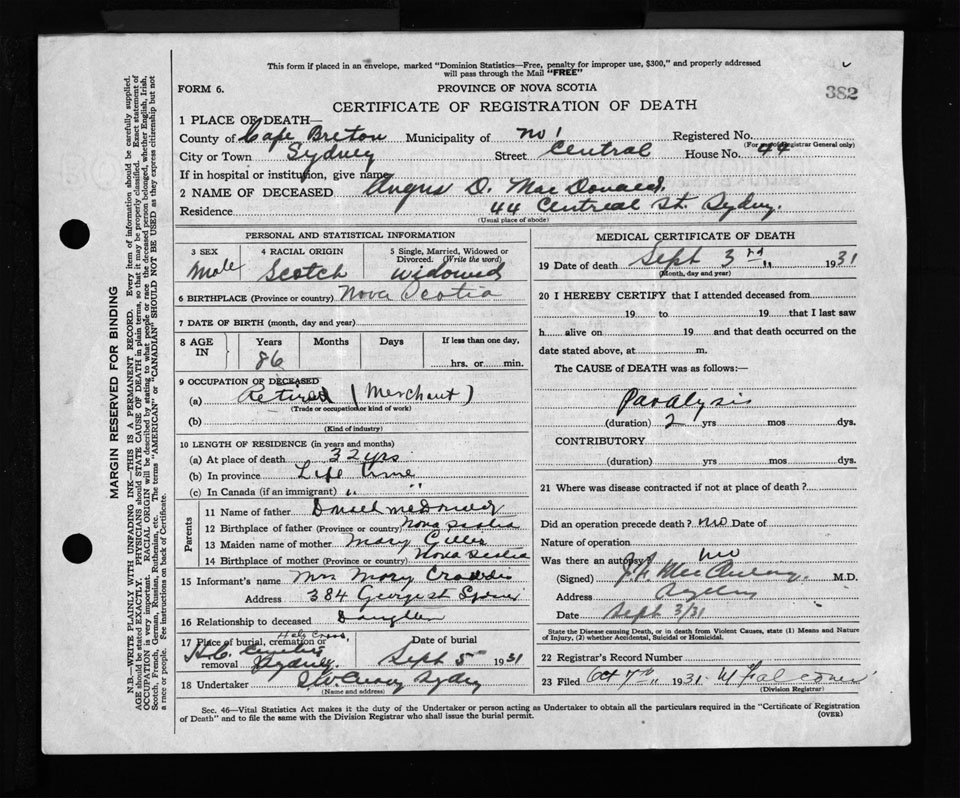 This form if placed in an envelope, marked "Dominion Statistics—Free, penalty for improper use, $300," and properly addressed
will pass through the Mail "FREE"
382
FORM 6.
PROVINCE OF NOVA SCOTIA
CERTIFICATE OF REGISTRATION OF DEATH
1 PLACE OF DEATH—
County of Cape Breton Municipality of No 1 Registered No.
(For use of Registrar General only)
City or Town Sydney Street Central House No. 44
If in hospital or institution, give name
2 NAME OF DECEASED Angus D. MacDonald.
Residence 44 Centreal St. Sydney.
(Usual place of abode)
PERSONAL AND STATISTICAL INFORMATION
3 SEX Male
4 RACIAL ORIGIN Scotch
5 Single, Married, Widowed or Divorced. (Write the word) Widowed
6 BIRTHPLACE (Province or country) Nova Scotia
7 DATE OF BIRTH (month, day and year)
8 AGE IN Years 86 Months Days If less than one day, hrs. or min.
9 OCCUPATION OF DECEASED
(a) Retired (Merchant)
(Trade or occupation or kind of work)
(b)
(Kind of industry)
10 LENGTH OF RESIDENCE (in years and months)
(a) At place of death 32 yrs
(b) In province Life time
(c) In Canada (if an immigrant) " "
Parents
11 Name of father
12 Birthplace of father (Province or country) Nova Scotia
13 Maiden name of mother Mary Gillis
14 Birthplace of mother (Province or country) Nova Scotia
15 Informant's name Mrs Mary
Address 384 George st Sydney
16 Relationship to deceased Daughter
17 Place of burial, cremation or removal Holy Cross Sydney. Date of burial Sept 5 1931
18 Undertaker Sydney
(Name and address)
MEDICAL CERTIFICATE OF DEATH
19 Date of death Sept 3rd " 1931
(Month, day and year)
20 I HEREBY CERTIFY that I attended deceased from
19 to 19 that I last saw
h alive on 19 and that death occurred on the
date stated above, at m.
The CAUSE of DEATH was as follows:—
Paralysis
(duration) 2 yrs mos dys.
CONTRIBUTORY
(duration) yrs mos dys.
21 Where was disease contracted if not at place of death?
Did an operation precede death? no Date of
Nature of operation
Was there an autopsy no
(Signed) M.D.
Address Sydney
Date Sept 3/31
State the Disease causing Death, or in death from Violent Causes, state (1) Means and Nature
of Injury, (2) whether Accidental, Suicidal or Homicidal.
22 Registrar's Record Number
23 Filed Oct 7th " 1931 W Falconer
(Division Registrar)
Sec. 46—Vital Statistics Act makes it the duty of the Undertaker or person acting as Undertaker to obtain all the particulars required in the "Certificate of Registration
of Death" and to file the same with the Division Registrar who shall issue the burial permit.
(OVER)
MARGIN RESERVED FOR BINDING
N.B.—WRITE PLAINLY WITH UNFADING INK—THIS IS A PERMANENT RECORD. Every item of information should be carefully supplied.
AGE should be stated EXACTLY. PHYSICIANS should STATE CAUSE OF DEATH in plain terms, so that it may be properly classified. Exact statement of
OCCUPATION is very important. RACIAL ORIGIN will be described by stating to what people or race the deceased person belonged, whether English, Irish,
Scotch, French, German, Russian, Ruthenian, etc. The terms "AMERICAN" or "CANADIAN" SHOULD NOT BE USED as they express citizenship but not
a race or people. See instructions on back of Certificate.